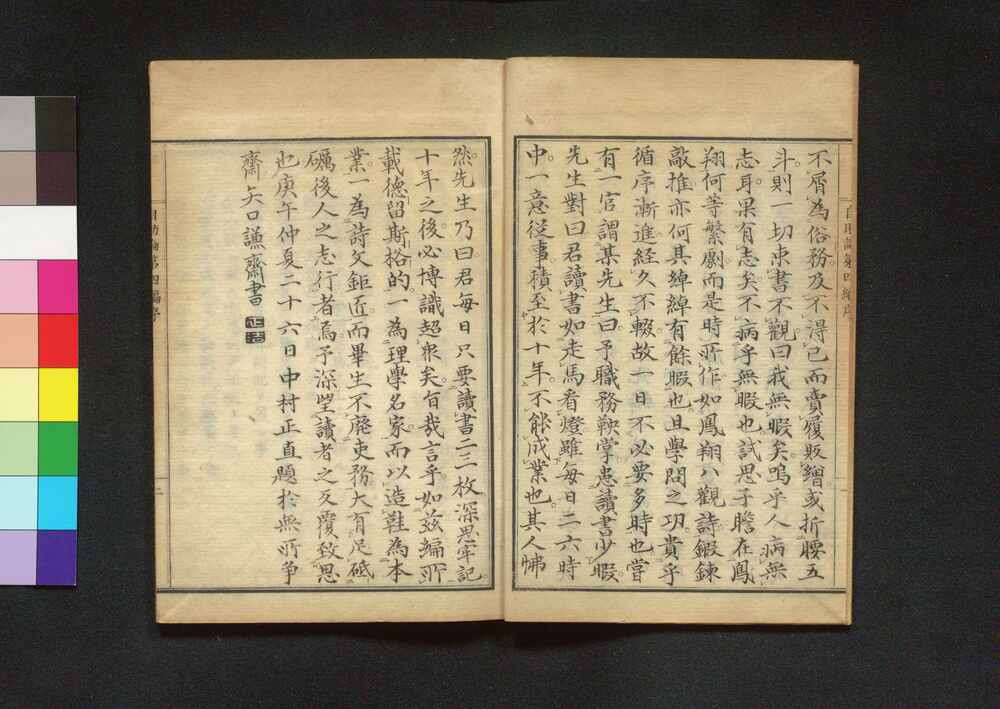 不屑為俗務及不得已而賣履販繒或折腰五
斗則一切束書不觀曰我無暇矣嗚乎人病無
志耳果有志矣不病乎無暇也試思子瞻在鳳
翔何等繁劇而是時所作如鳳翔八觀詩鍛鍊
敲推亦何其綽綽有餘暇也且學問之功貴乎
循序漸進経久不輟故一日不必要多時也嘗
有一官謂某先生曰予職務鞅掌患讀書少暇
先生對曰君讀書如走馬看燈雖每日二六時
中一意従事積至於十年不能成業也其人怫
然先生乃曰君每日只要讀書二三枚深思牢記
十年之後必博識超衆矣旨哉言乎如茲編所
載德留斯格的一為理學名家而以造鞋為本
業一為詩文鉅匠而畢生不廃吏務大有足砥
礪後人之志行者焉予深望讀者之反覆致思
也庚午仲夏二十六日中村正直題於無所争
齋 矢口謙齋書
自助論第四編序